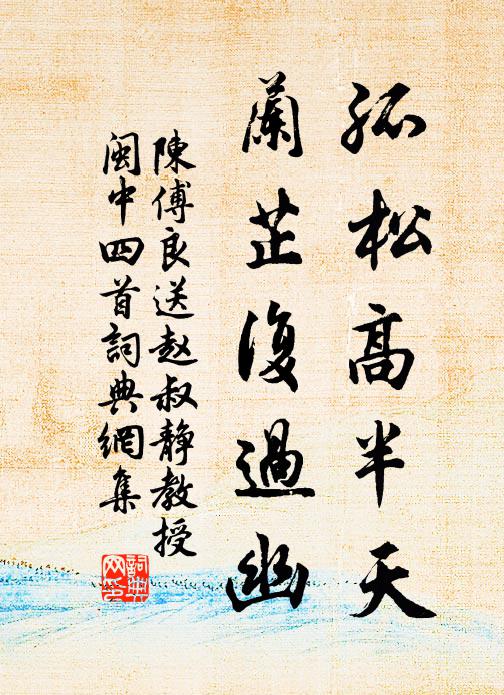 孤松高半天
蘭芷復過幽
陳傅良送赵叔靜教授
閩中四首詞典網集
詞典
网集